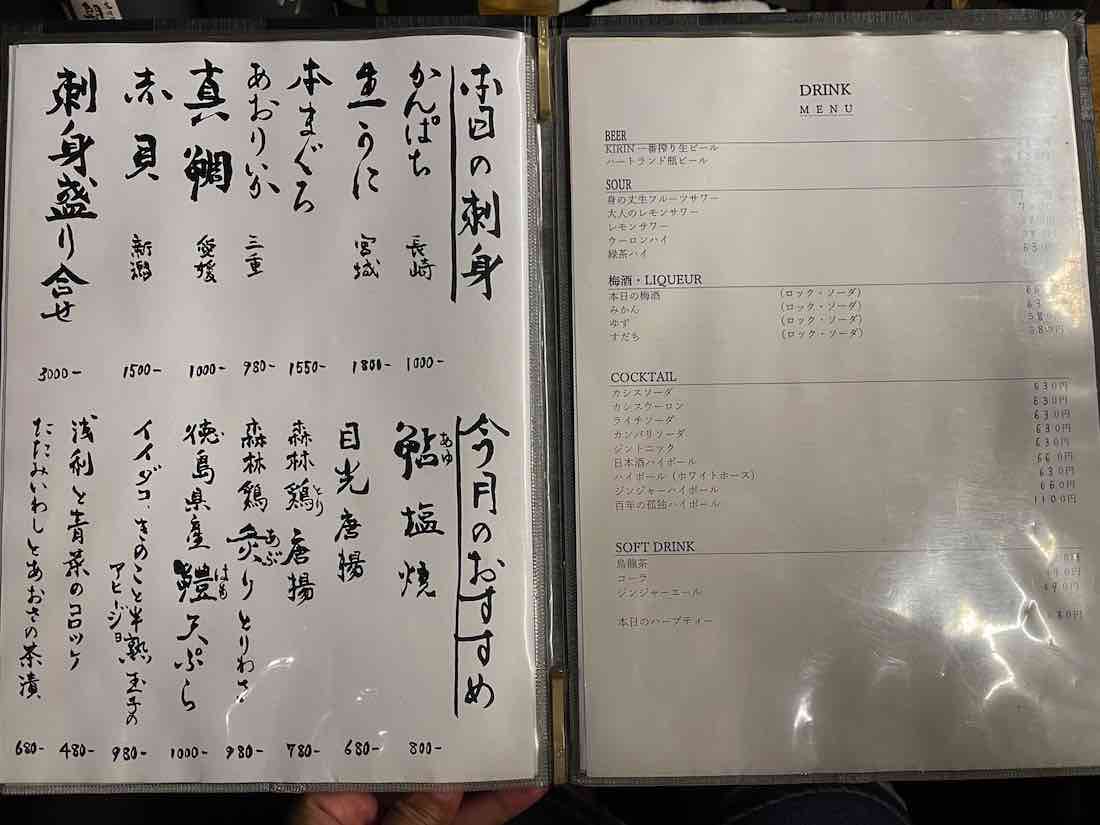 本日の刺身
かんぱち 長崎 1000-
生うに 宮城 1800-
本まぐろ 1550-
あおりいか 三重 980-
真鯛 愛媛 1000-
赤貝 新潟 1500-
刺身盛り合せ 3000-
今月のおすすめ
鮎塩焼 あゆ 800-
目光唐揚 680-
森林鶏唐揚 とり 780-
森林鶏炙りとりわさ あぶ 980-
徳島県産鱧天ぷら はも 1000-
イイダコ、きのこと半熟玉子の
アヒージョ 980-
浅利と青菜のコロッケ 480-
たたみいわしとあおさの茶漬 680-
DRINK
MENU
BEER
KIRIN 一番搾り生ビール
ハートランド瓶ビール
SOUR
身の丈生フルーツサワー
大人のレモンサワー
レモンサワー
ウーロンハイ
緑茶ハイ 630円
梅酒・LIQUEUR
本日の梅酒 (ロック・ソーダ)
みかん (ロック・ソーダ)
ゆず (ロック・ソーダ) 580円
すだち (ロック・ソーダ) 580円
COCKTAIL
カシスソーダ 630円
カシスウーロン 630円
ライチソーダ 630円
カンパリソーダ 630円
ジントニック 630円
日本酒ハイボール 660円
ハイボール (ホワイトホース) 630円
ジンジャーハイボール 660円
百年の孤独ハイボール 1100円
SOFT DRINK
烏龍茶
コーラ
ジンジャーエール
本日のハーブティー